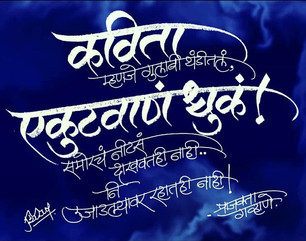 कविता
म्हणजे गुलाबी थंडीतलं,
एकुटवाणं धुकं!
समोरचं नीटसं
दाखवतही नाही..
नि
उजाडल्यावर राहातही नाही!
-प्राजक्ता
गव्हाणे